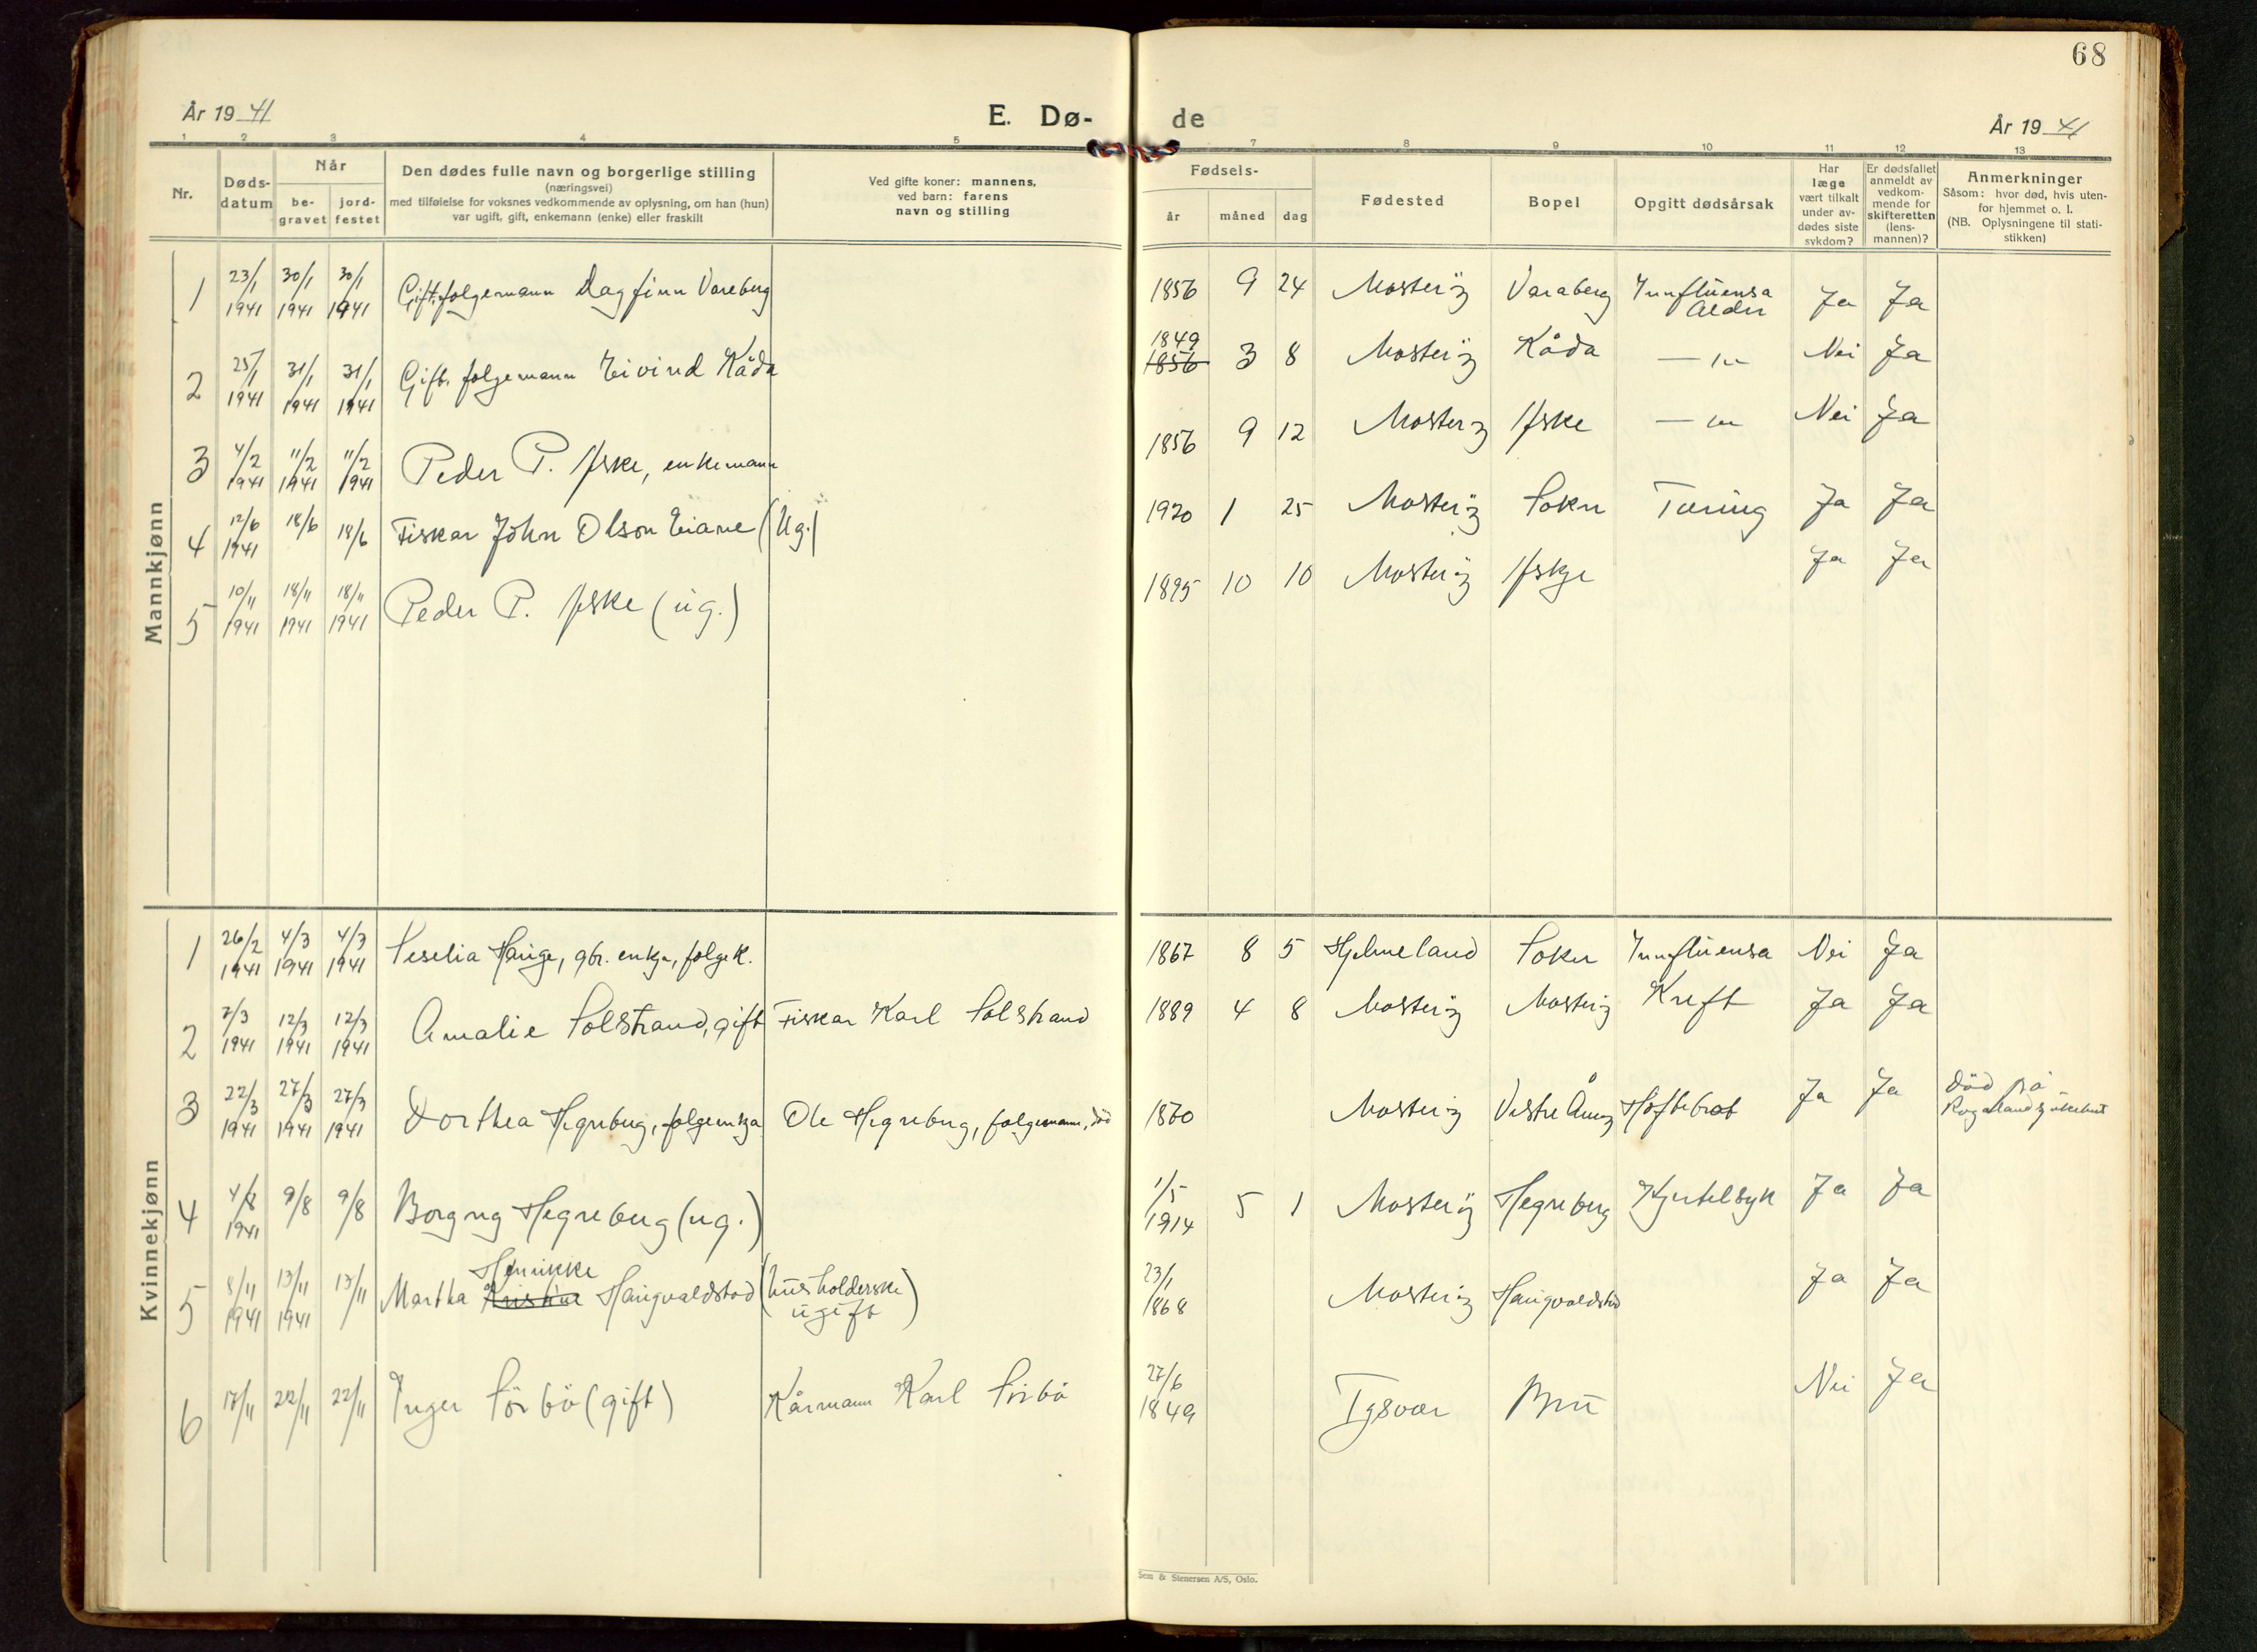 68
År 19 41
E. Dø-
de
År 19 41
1 2 3 4 5 7 8 9 10 11 12 13
Nr.
Døds-
datum
Når
be-
gravet
jord-
festet
Den dødes fulle navn og borgerlige stilling
(næringsvei)
med tilføielse for voksnes vedkommende av oplysning, om han (hun)
var ugift, gift, enkemann (enke) eller fraskilt
Ved gifte koner: mannens,
ved barn: farens
navn og stilling
Fødsels-
år måned dag
Fødested
Bopel
Opgitt dødsårsak
Har
læge
vært tilkalt
under av-
dødes siste
sykdom?
Er dødsfallet
anmeldt av
vedkom-
mende for
skifteretten
(lens-
mannen)?
Anmerkninger
Såsom: hvor død, hvis uten-
for hjemmet o. l.
(NB. Oplysningene til stati-
stikken)
Mannkjønn
1 23/1 1941 30/1 1941 30/1 1941 Gift. følgemann Dagfinn Vareberg 1856 9 24 Mosterøy Varaberg Innfluensa Alder Ja Ja
2 25/1 1941 31/1 1941 31/1 1941 Gift. følgemann Eivind Kåda 1849 1856 3 8 Mosterøy Kåda — " — Nei Ja
3 4/2 1941 11/2 1941 11/2 1941 Peder P. Askje, enkemann 1856 9 12 Mosterøy Askje — " — Nei Ja
4 12/6 1941 18/6 18/6 Fiskar John Olson Eiane (Ug.) 1920 1 25 Mosterøy Sokn Tæring Ja Ja
5 10/11 1941 18/11 1941 18/11 1941 Peder P. Askje (ug.) 1895 10 10 Mosterøy Askje Ja Ja
Kvinnekjønn
1 26/2 1941 4/3 1941 4/3 1941 Seselia Hauge, gbr. enkje, følgek. 1867 8 5 Hjelmeland Sokn Innfluensa Nei Ja
2 7/3 1941 12/3 1941 12/3 1941 Amalie Solstrand, gift Fiskar Karl Solstrand 1889 4 8 Mosterøy Mosterøy Kreft Ja Ja
3 22/3 1941 27/3 1941 27/3 1941 Dorthea Hegreberg, følgeenkja Ole Hegreberg, følgemann, død 1860 Mosterøy Vestre Åmøy Hoftebrot Ja Ja Død på Rogaland sjukehus
4 4/8 1941 9/8 9/8 Borgny Hegreberg (ug.) 1/5 1914 5 1 Mosterøy Hegreberg Hjertelsyk Ja Ja
5 8/11 1941 13/11 1941 13/11 Martha Kristine Henrikke Haugvaldstad (husholderske ugift) 23/1 1868 Mosterøy Haugvaldstad Ja Ja
6 17/11 22/11 22/11 Inger Sörbö (gift) Kårmann Karl Sörbö 27/6 1849 Tysvær Bru Nei Ja
Sem & Stenersen A/S, Oslo.